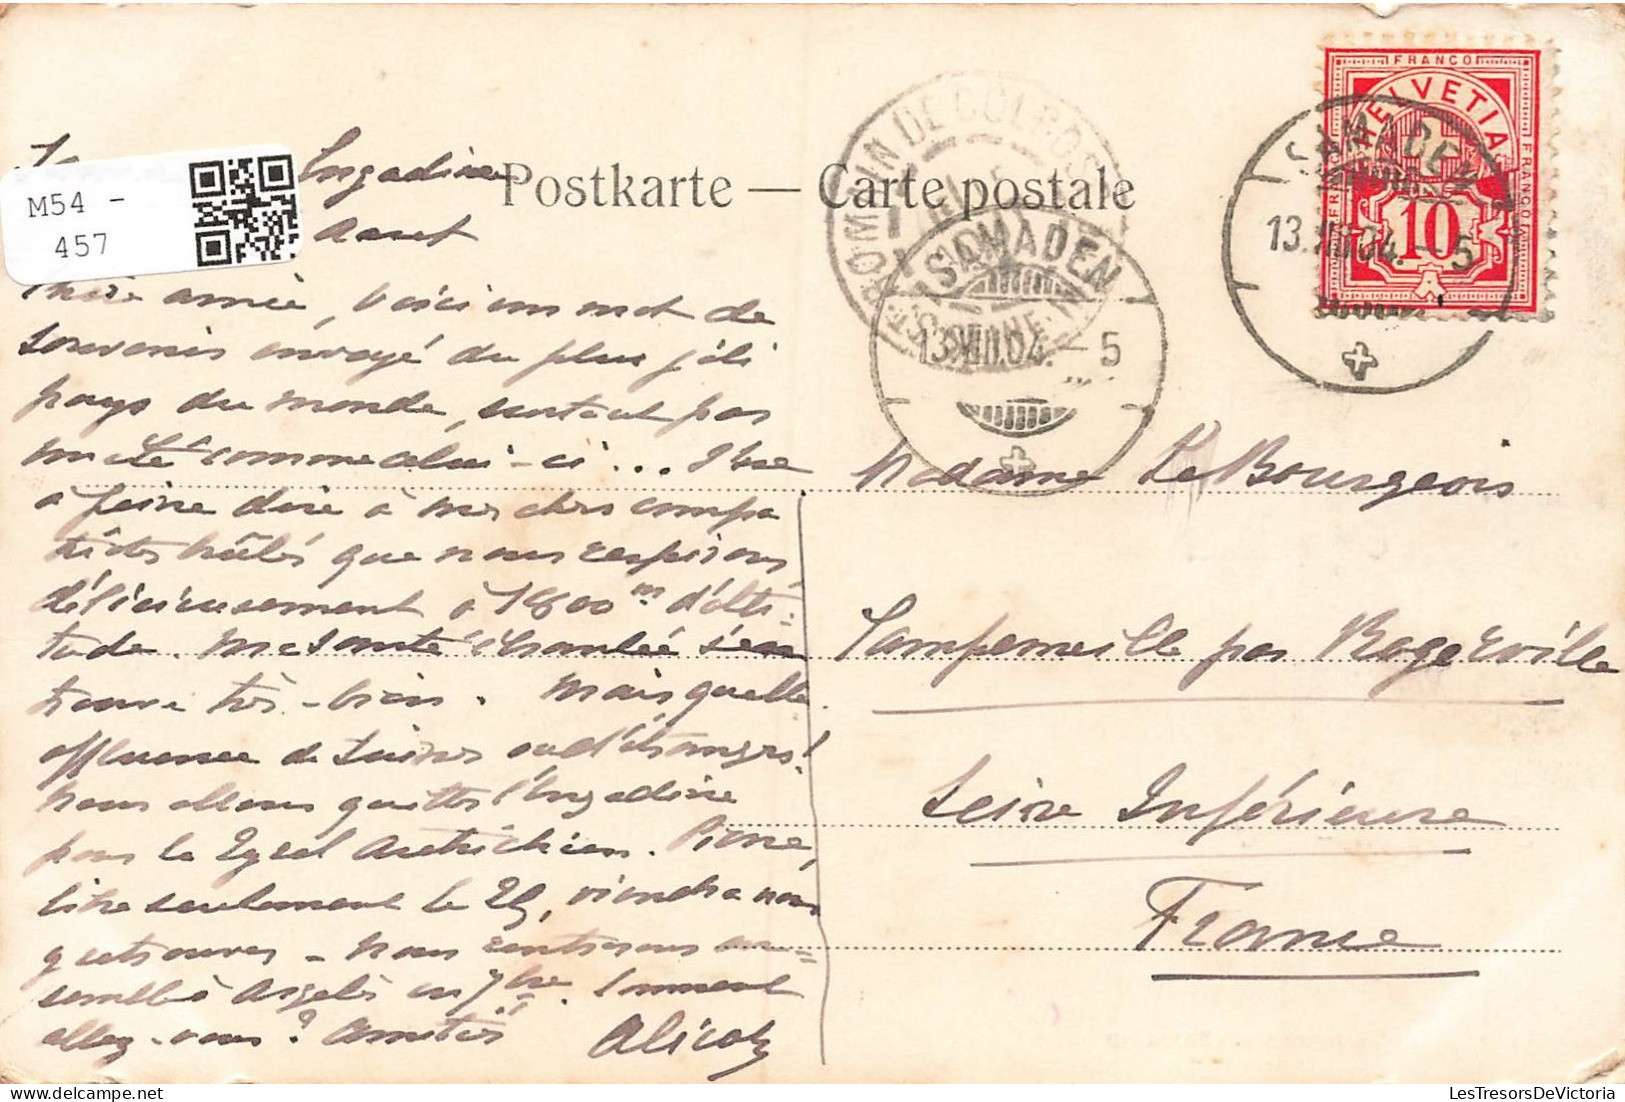 M54 -
457
Engadine
Aout
Postkarte — Carte postale
FRANCO
HELVETIA
FRANCO
FRANCO
10
SAMADEN
13.VIII.04.-5
ROMAIN DE COLBOSC
SAMADEN
13.VIII.04.-5
Chère amie, voici un mot de
souvenir envoyé du plus joli
pays du monde, surtout par
un été comme celui-ci... J'ose
à peine dire à mes chers compa
triotes brûlés que nous respirons
délicieusement à 1800 m d'alti-
tude. Ma santé ébranlée s'en
trouve très-bien. Mais quelle
affluence de Suisses ou d'étrangers!
Nous allons quitter l'Engadine
pour le Tyrol Autrichien. Pierre,
libre seulement le 29, viendra nous
y retrouver - Nous rentrerons en-
semble à Argelès en 7bre. Comment
allez-vous? Amitiés
Madame Le Bourgeois
par Rogerville
Seine Inférieure
France
LesTresorsDeVictoria